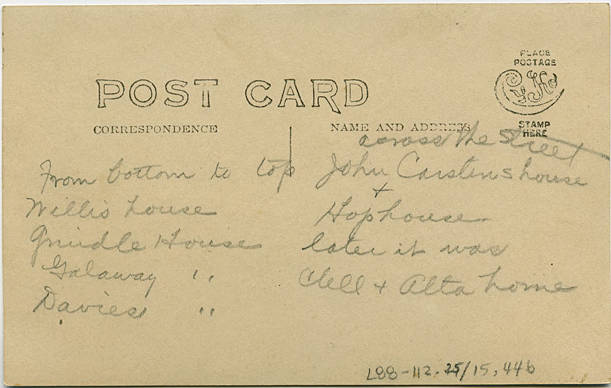 PLACE
POSTAGE
POST CARD
STAMP
HERE
CORRESPONDENCE
NAME AND ADDRESS
From bottom to top
Willis house
Grindle House
Galaway "
Davies "
across the street
John Carstens house
+
Hophouse
later it was
Clell + Alta home
L88-112.25/15,446